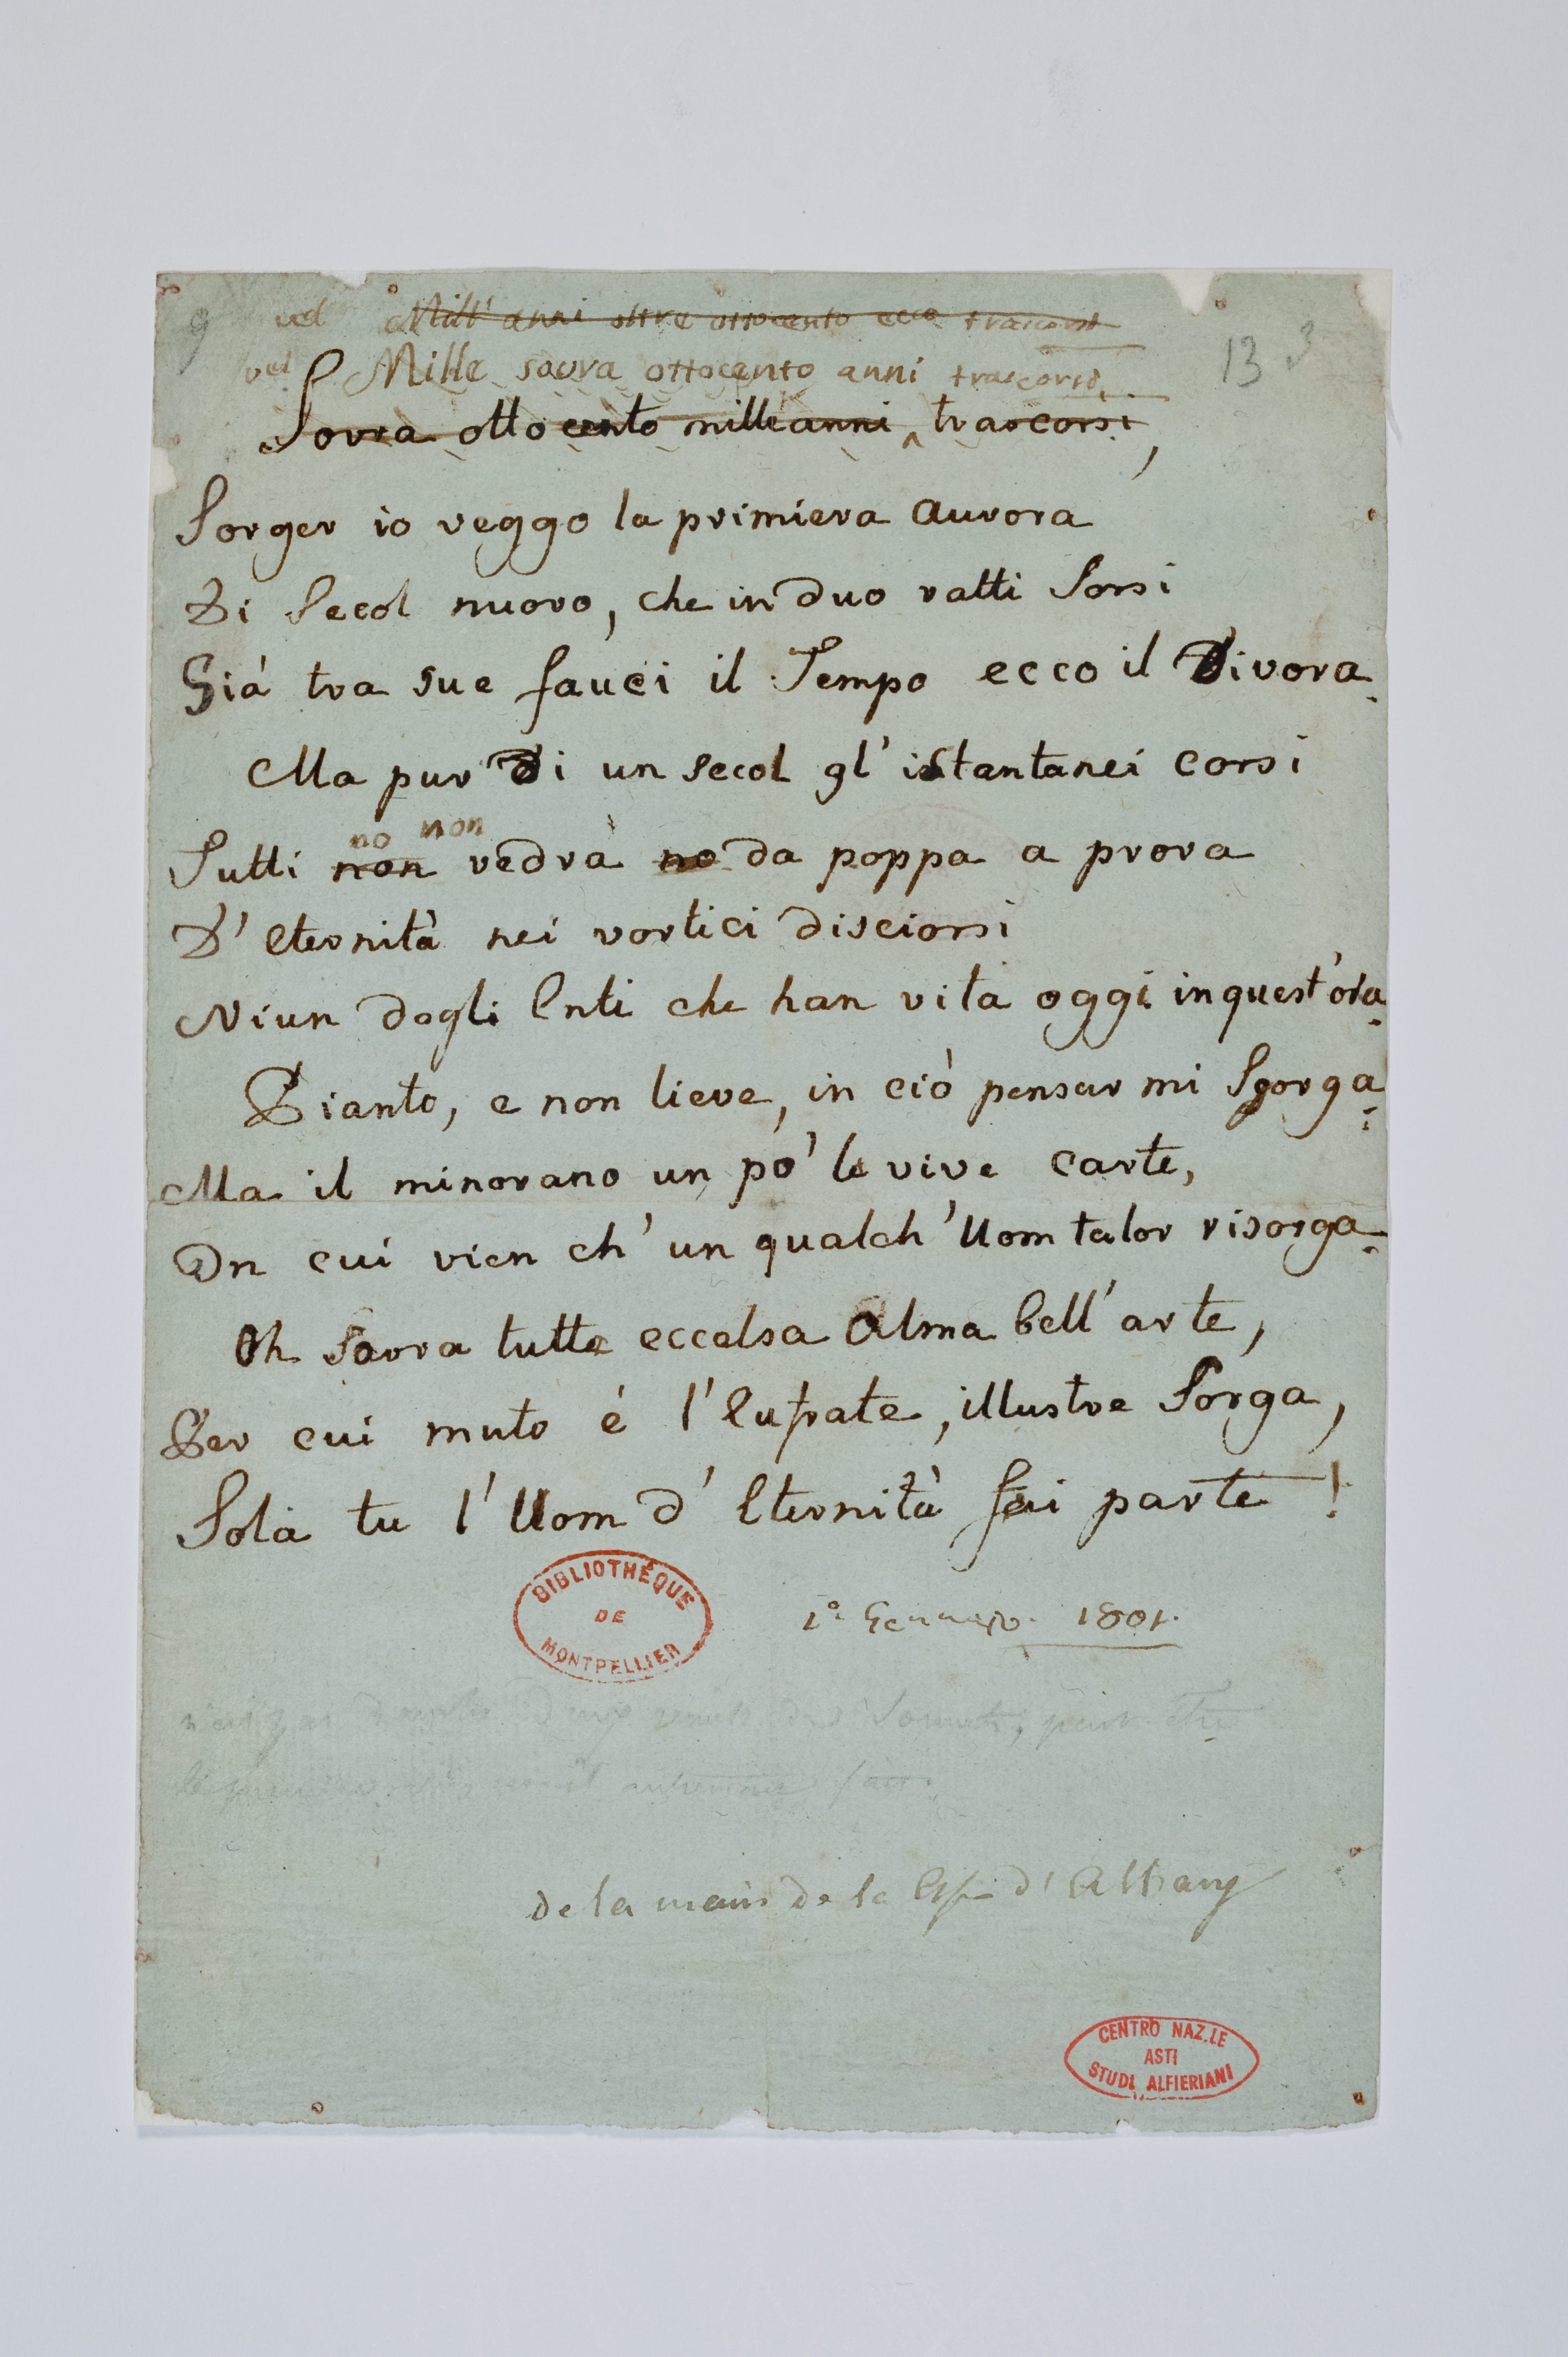 9 vel Mill' anni oltre ottocento ecco trascorsi
13 3
vel Mille sovra ottocento anni trascorsi,
Sovra ottocento mille anni ^ trascorsi,
Sorger io veggo la primiera aurora
Di Secol nuovo, che in duo ratti Sorsi
Già tra sue fauci il Tempo ecco il Divora.
Ma pur di un secol gl'istantanei corsi
no non
Tutti non vedrà no da poppa a prora
D'Eternità nei vortici disciorsi
Niun degli Enti che han vita oggi in quest'ora.
Pianto, e non lieve, in ciò pensar mi Sgorga:
Ma il minorano un pò le vive carte,
In cui vien ch'un qualch'Uom talor risorga.
Oh Sovra tutte eccelsa Alma bell'arte,
Per cui muto è l'Eufrate, illustre Sorga,
Sola tu l'Uom d'Eternità fai parte!
BIBLIOTHÈQUE
DE
MONTPELLIER
1º Gennajo. 1801.
de la main de la d'Albany
CENTRO NAZ.LE
ASTI
STUDI ALFIERIANI